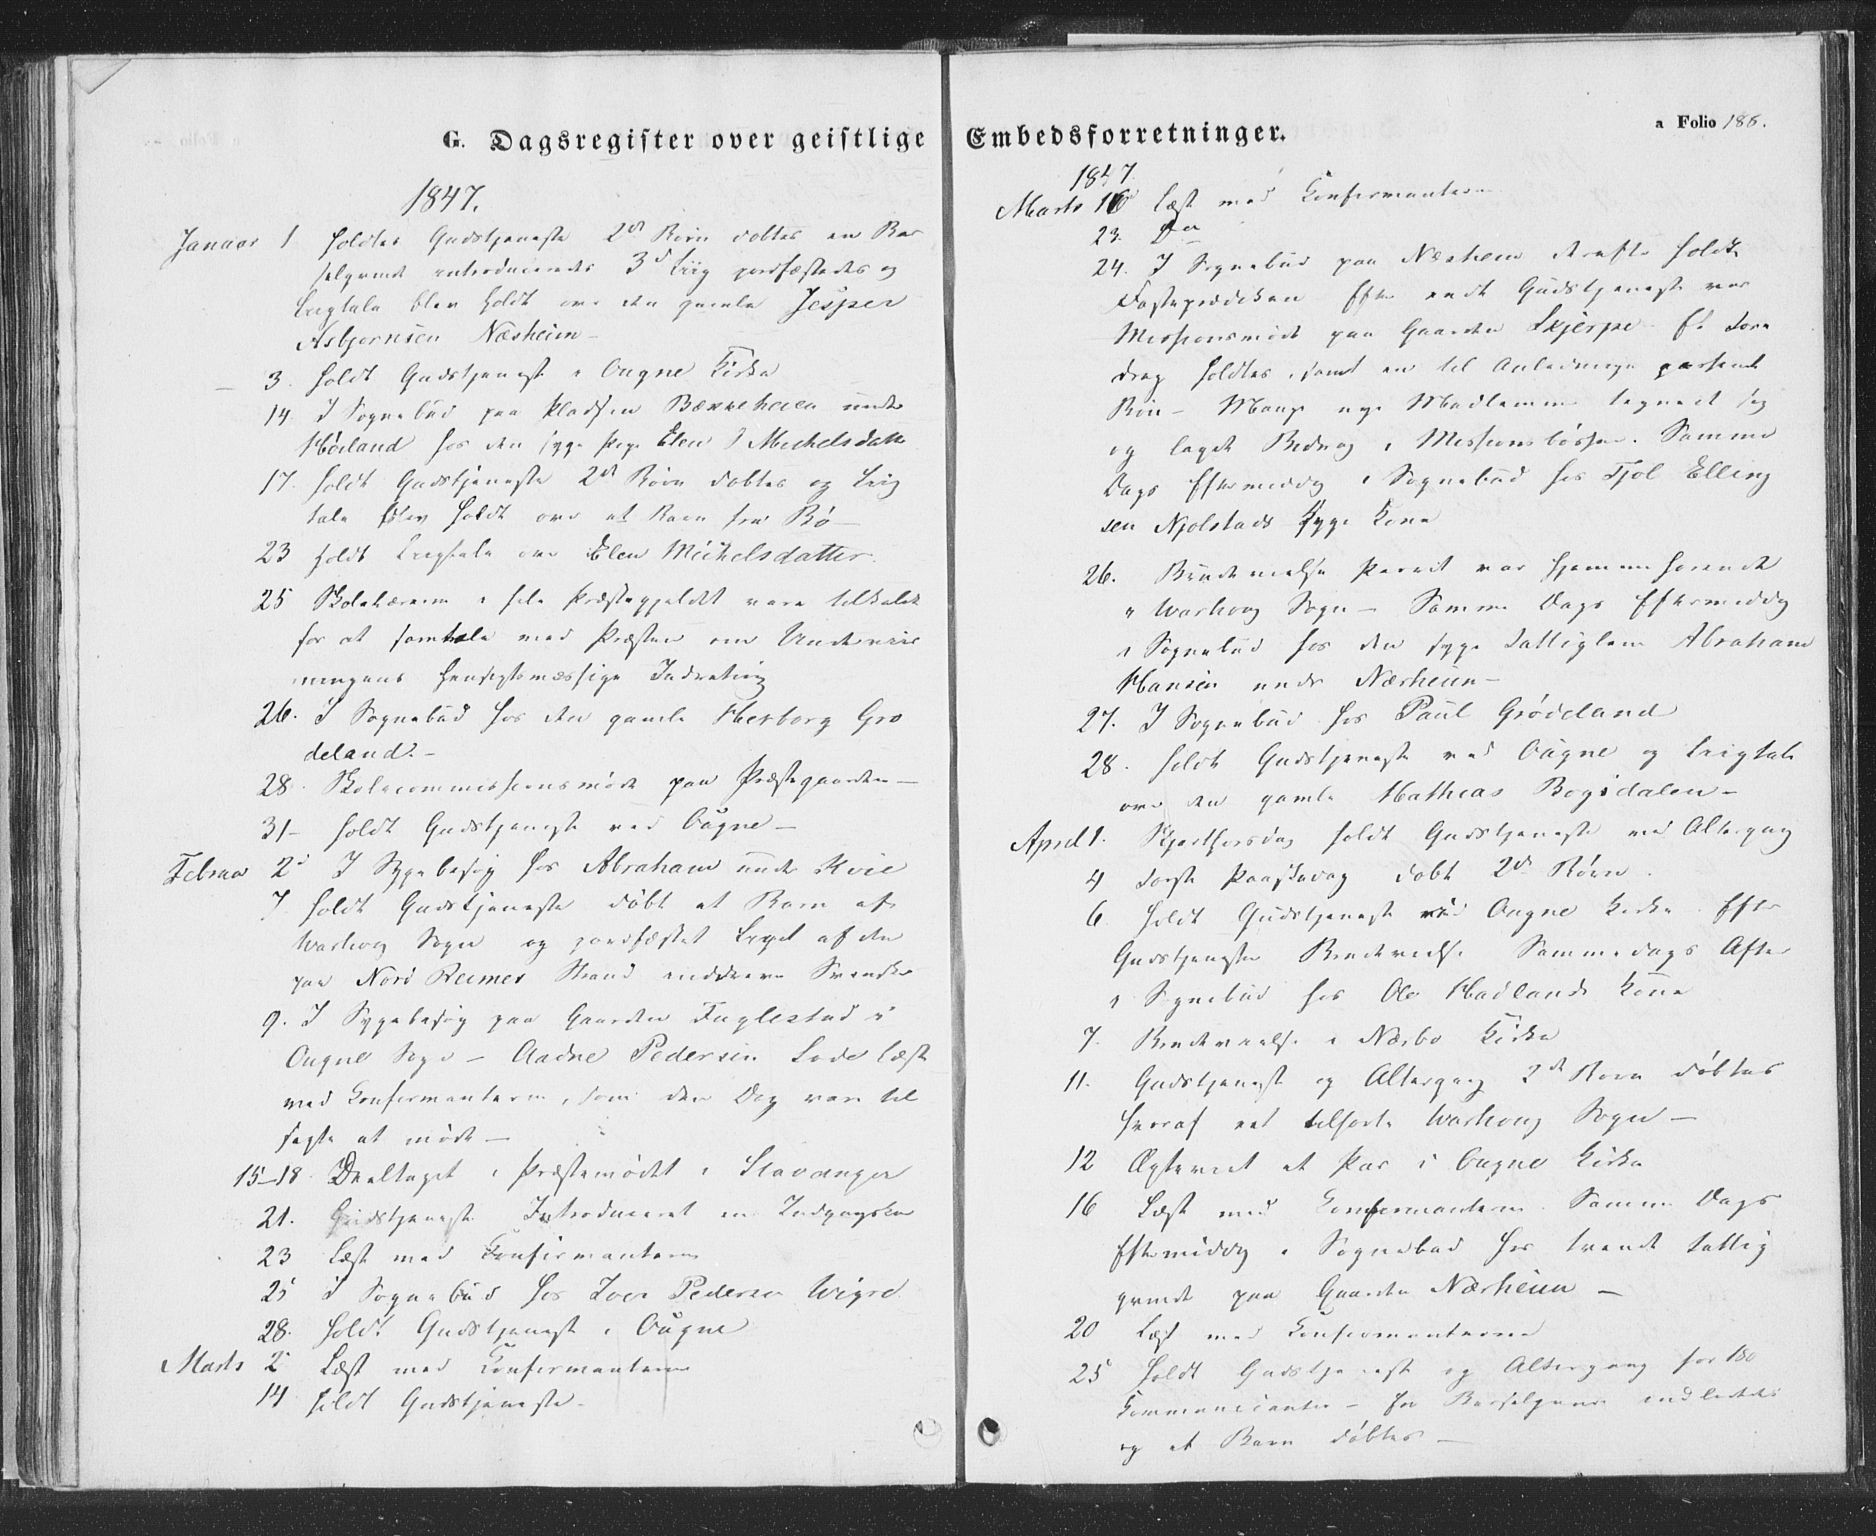 G. Dagsregister over geistlige
1847.
Januar 1 holdtes Gudstjeneste 2de Børn døbtes en Bar
selqvinde introduceredes 3de Liig jordfæstedes og
Liigtale blev holdt over den gamle Jesper
Asbjørnsen Næsheim –
3. holdt Gudstjeneste i Ougne Kirke
14 I Sognebud paa Pladsen Bærreheien under
Høiland hos den syge Pige Elen Michelsdatt
17. holdt Gudstjeneste 2de Børn døbtes og Liig
tale blev holdt over et Barn fra Bø –
23 holdt Liigtale over Elen Michelsdatter.
25 Skolelærerne i hele Præstegjeldet vare tilkaldt
for at samtale med Præsten om Underviis
ningens hensigtsmæssige Indretning
26. I Sognebud hos den gamle Herborg Grø
deland. –
28. Skolecommissionsmøde paa Præstegaarden –
31 – holdt Gudstjeneste ved Ougne –
Februar 2 I Sygebesøg hos Abraham under Kvie
7 holdt Gudstjeneste døbt et Barn af
Warhoug Sogn og jordfæstet Liget af den
paa Nord Reimes Strand inddrevne Svensker
9. I Sygebesøg paa Gaarden Fuglestad i
Ougne Sogn – Aadne Pedersen Lode læste
med Confirmanterne, som den Dag vare til
sagte at møde –
15–18. Deeltaget i Præstemødet i Stavanger
21. Gudstjeneste Introduceret en Indgangskone
23 Læst med Confirmanterne
25 I Sognebud hos Iver Pedersen Wigre
28. holdt Gudstjeneste i Ougne
Marts 2 Læst med Confirmanterne
14 holdt Gudstjeneste –
Embedsforretninger.
a Folio 186.
1847.
Marts 16 læst med Confirmanterne
23. Do
24. I Sognebud paa Næsheim derefter holdt
Fasteprædiken Efter endt Gudstjeneste var
Missionsmøde paa Gaarden Skjerpe Et Fore
drag holdtes, samt en til Anledningen passende
Bøn – Mange nye Medlemmer tegnede sig
og lagde Bidrag i Missionsbøssen. Samme
Dags Eftermiddag i Sognebud hos Tjøl Elling
sen Njølstads syge Kone
26. Brudevielse Parret var hjemmehørende
i Warhoug Sogn – Samme Dags Eftermiddag
i Sognebud hos den syge Fattiglem Abraham
Hansen under Nærheim –
27. I Sognebud hos Paul Grødeland
28. holdt Gudstjeneste ved Ougne og Liigtale
over den gamle Mathias Bogsdalen –
April 1. Skjærthorsdag holdt Gudstjeneste med Altergang
4 første Paaskedag døbt 2de Børn.
6. holdt Gudstjeneste ved Ougne Kirke. Efter
Gudstjenesten Brudevielse Sammedags Aften
i Sognebud hos Ole Hadlands Kone
7. Brudevielse i Nærbø Kirke
11. Gudstjeneste og Altergang 2de Børn døbtes
hvoraf eet tilhørte Warhoug Sogn –
12 Ægteviet et Par i Ougne Kirke
16 Læst med Confirmanterne. Samme Dags
Eftermiddag i Sognebud hos trende Fattig
qvinder paa Gaarden Nærheim –
20 Læst med Confirmanterne
25 holdt Gudstjeneste og Altergang for 180
Communicanter – En Barselqvinde indlededes
og et Barn døbtes –